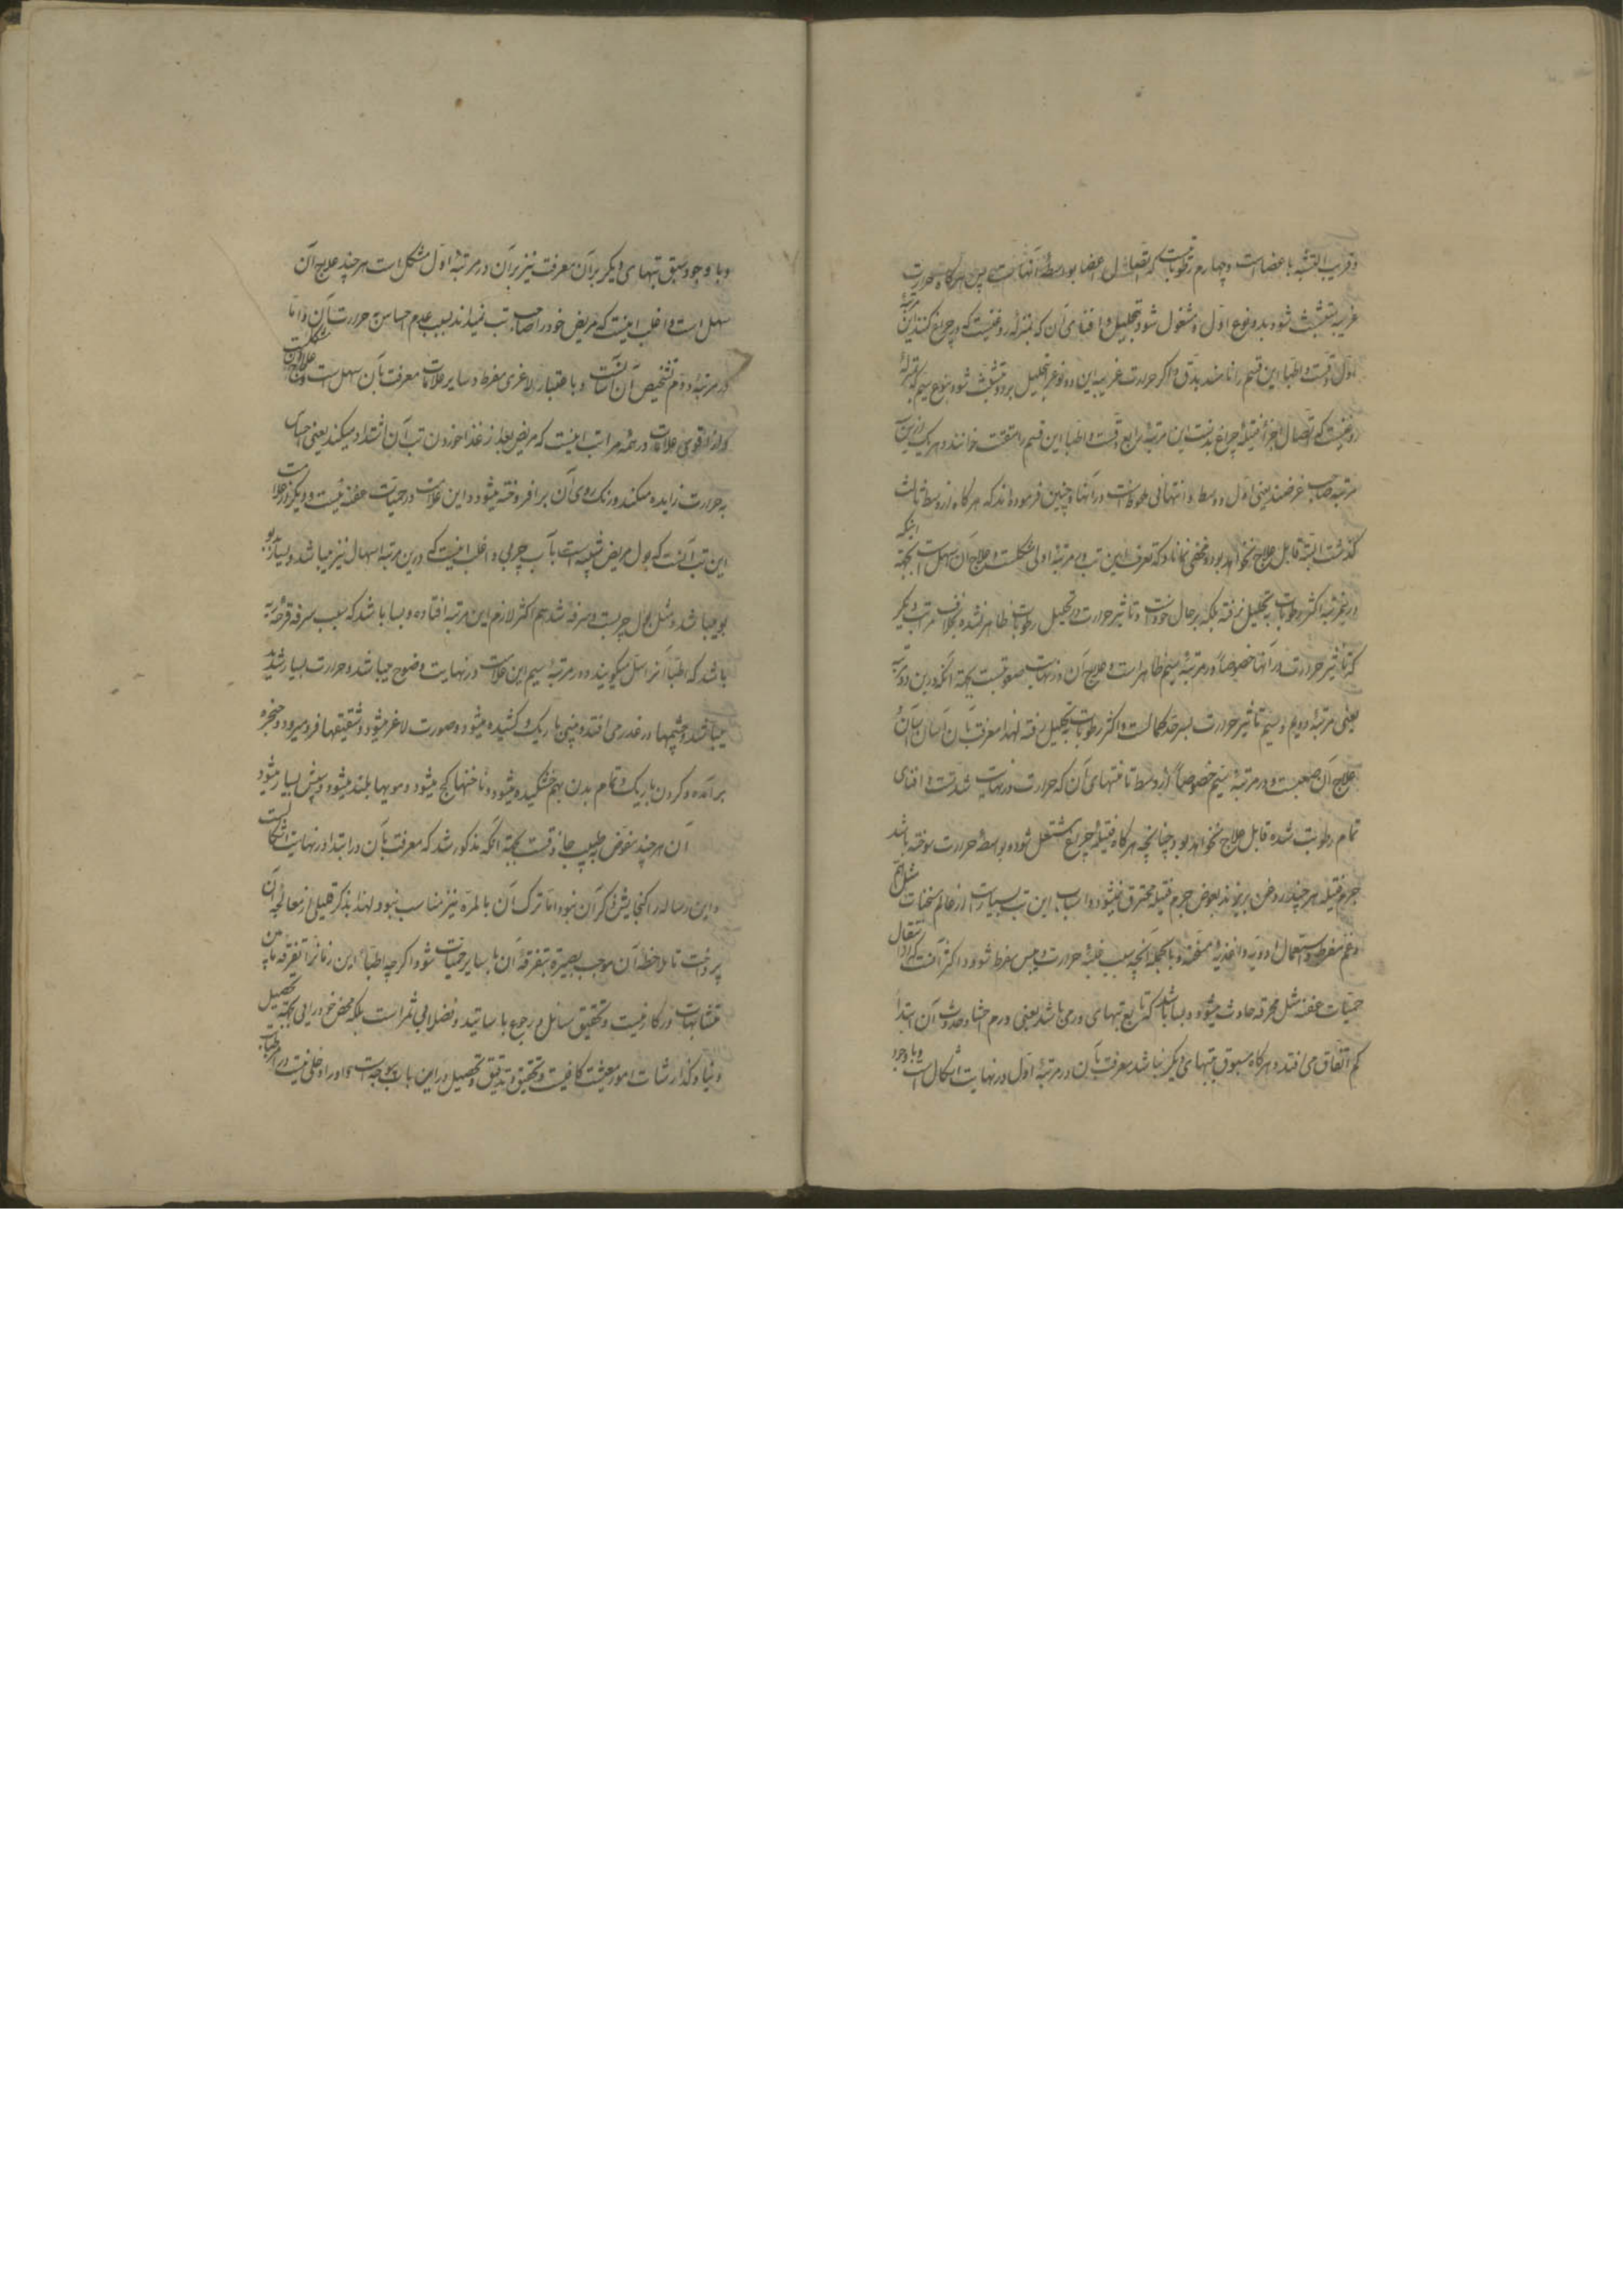 و قریب التشبه با عضاست و چهارم رطوباتیست که اتصال اعضا بواسطهٔ آنهاست پس هرگاه حرارت
غریبه متشبث شود بدو نوع اول و مشغول شود بتحلیل و افنای آن که بمنزله روغنیست که در چراغ کنند این مرتبهٔ
اول دقست و اطبا این قسم را نامند بدق و اگر حرارت غریبه این دو نوع بتحلیل برد و متشبث شود بنوع سیم که بمنزلهٔ
روغنیست که اتصال اجزاء فتیلهٔ چراغ بدنست این مرتبهٔ رابع دقست و اطبا این قسم را مفتت خوانند و هر یک از این سه
مرتبه صاحب عرضند یعنی اول و وسط و انتهائی ملحوظ است در آنها و چنین فرموده اند که هرگاه از وسط ثالث
گذشت البته قابل علاج نخواهد بود و مخفی نماناد که تعرف این تب در مرتبهٔ اولی مشکلست و علاج آن سهل است بجهة اینکه
درین مرتبه اکثر رطوبات به تحلیل نرفته بلکه بر حال خود است و تاثیر حرارت در تحلیل رطوبات ظاهر نشده بخلاف مراتب دیگر
که تاثیر حرارت در آنها خصوصاً در مرتبهٔ سیم ظاهر است و علاج آن در نهایت صعوبتست بجهة آنکه درین دو مرتبه
یعنی مرتبهٔ دویم و سیم تاثیر حرارت بسرحد کمالست و اکثر رطوبات بتحلیل رفته لهذا معرفت آن آسان است اما
علاج آن صعبست و در مرتبهٔ سیم خصوصاً از وسط تا منتهای آن که حرارت در نهایت شدتست و افنای
تمام رطوبت شده قابل علاج نخواهد بود چنانچه هرگاه فتیلهٔ چراغ مشتعل شود و بواسطهٔ حرارت سوخته باشد
جرم فتیله هر چند روغن بریزند بعوض جرم فتیله محترق نمیشود و اسباب این تب بسیار است از عالم سخنات مثل هم
و غم مفرط و استعمال ادویه و اغذیهٔ مسخنه و بالجمله آنچه سبب غلبهٔ حرارت و یبس مفرط شود و اکثر آنست که از انتقال
حمیات عفنه مثل محرقه حادث میشود و بسا باشد که تابع تبهای ورمی باشد یعنی ورم احشا و حدوث آن ابتداءً
کم اتفاق می افتد و هرگاه مسبوق بتبهای دیگر نباشد معرفت بآن در مرتبهٔ اول در نهایت اشکال است و با وجود
و با وجود سبق تبهای دیگر بر آن معرفت نیز بر آن در مرتبهٔ اول مشکل است هر چند علاج آن
سهل است و اغلب اینست که مریض خود را صاحب تب نمیداند بسبب عدم احساس حرارت آن و اما
در مرتبهٔ دوم تشخیص آن آسانست و باعتبار لاغری مفرط و سایر علامات معرفت بآن سهل است و علاج آن مشکلست
و از اقوی علامات در همهٔ مراتب اینست که مریض بعد از غذا خوردن تب آن اشتداد میکند یعنی احساس
به حرارت زایده میکند و رنک روی آن برافروخته میشود و این علامت در حمیات عفنه نیست و دیگر از علامات
این تب آنست که بول مریض شبیه است بآب چربی و اغلب اینست که درین مرتبه اسهال نیز میباشد و بسیار بدبو
بو میباشد و مثل بول چربست و سرفه شدید هم اکثر لازم این مرتبه افتاده و بسا باشد که سبب سرفه قرحهٔ ریه
باشد که اطبا آنرا سل میگویند و در مرتبهٔ سیم این علامات در نهایت وضوح میباشد و حرارت بسیار شدید
میباشد و چشمها در غدر می افتد و بینی باریک و کشیده میشود و صورت لاغر میشود و شقیقها فرو میرود و حنجره
برآمده و گردن باریک و تمام بدن بهم خشکیده میشود و ناخنها کج میشود و مویها بلند میشود و سپش بسیار میشود
آن هر چند مفوض بطبیب حاذقست بجهة آنکه مذکور شد که معرفت بآن در ابتدا در نهایت اشکالست
و این رساله را گنجایش ذکر آن نبود اما ترک آن بالمره نیز مناسب نبود لهذا بذکر قلیلی از معالجهٔ آن
پرداخت تا ملاحظهٔ آن موجب بصیرة بتفرقهٔ آن با سایر حمیات شود اگرچه اطباء این زمانرا تفرقه مابین
متشابهات در کار نیست و تحقیق مسائل و رجوع باساتید و فضلا بی ثمر است بلکه محض خودرایی بجهة تحصیل
دنیا و گذارشات امور معیشت کافیست و تحقیق و تدقیق و تحصیل در این باب بیوجه است و او را دخلی نیست در امر طبابت